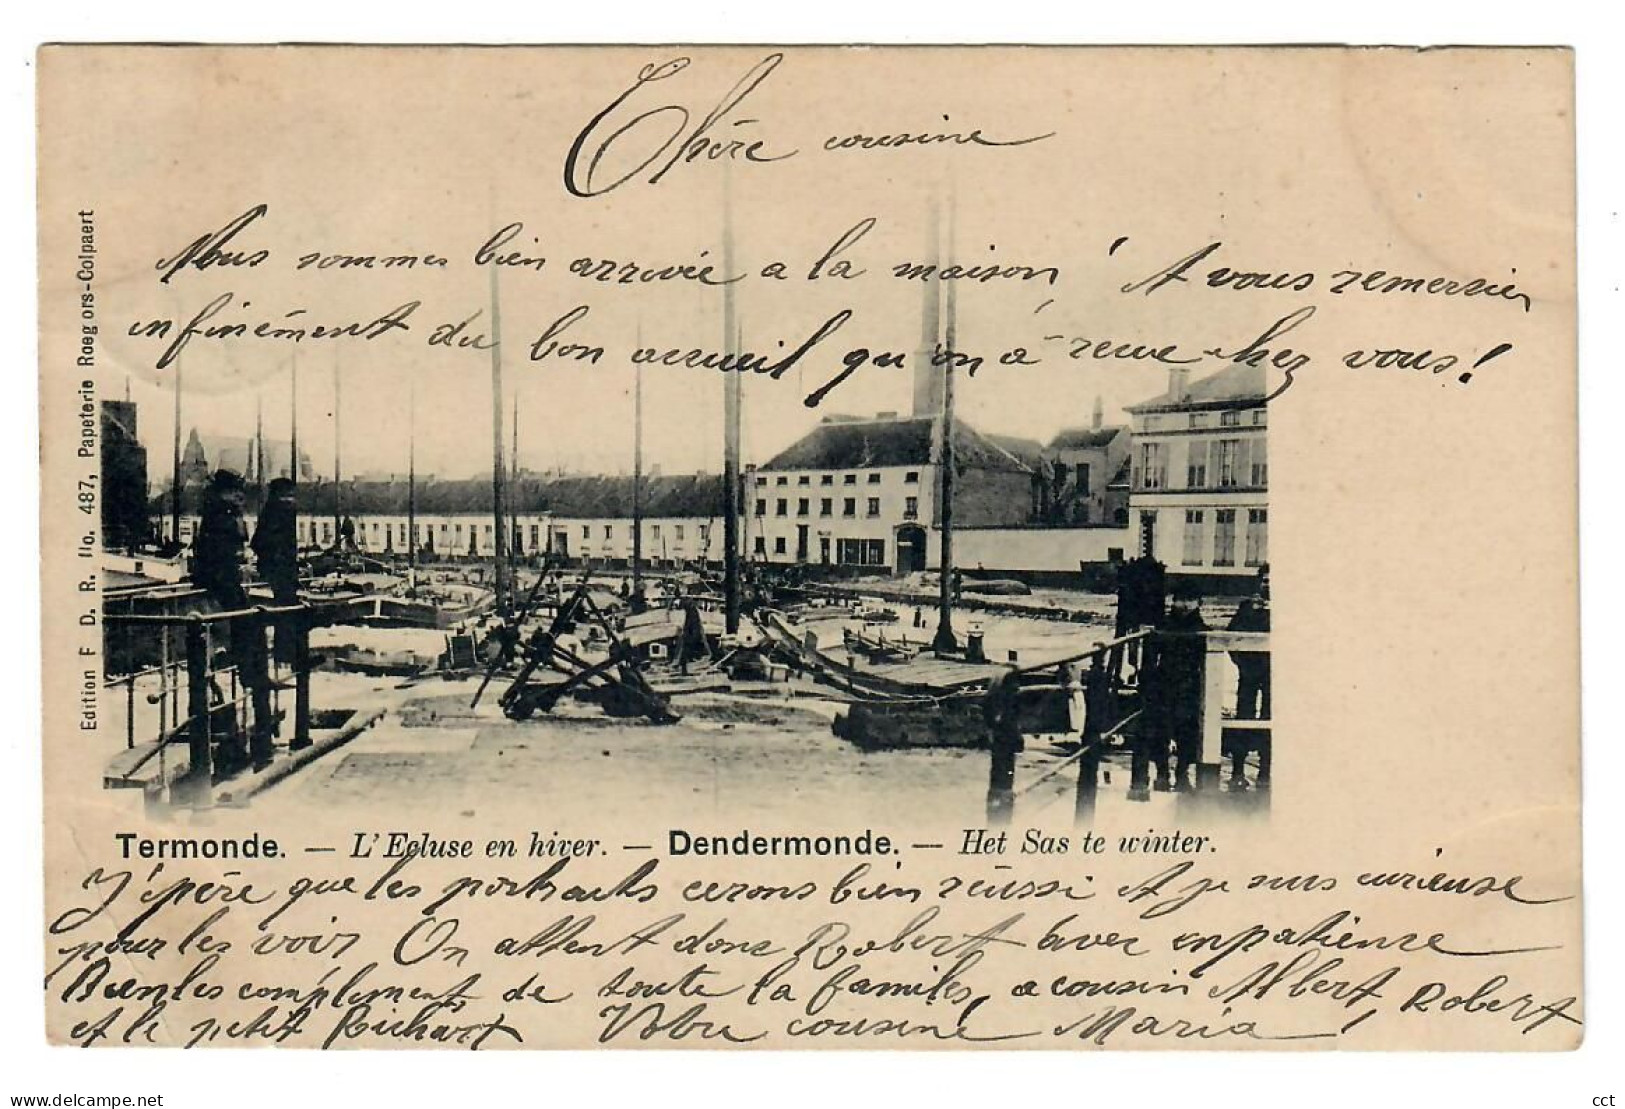 Chère cousine
Nous sommes bien arrivée a la maison ! Et vous remersier
infinément du bon accueil qu'on à reçue chez vous !
Edition F D. R. No. 487, Papeterie Roeg ors-Colpaert
Termonde. — L'Ecluse en hiver. — Dendermonde. — Het Sas te winter.
J'épère que les portraits cerons bien réussi Et je suis curieuse
pour les voir On attent donc Robert avec enpatience
Bien les complements de toute la familes, a cousin Albert, Robert
et le petit Richart Votre cousine Maria !
delcampe.net
cct